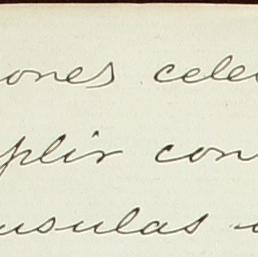 ones cele
plir con
usulas